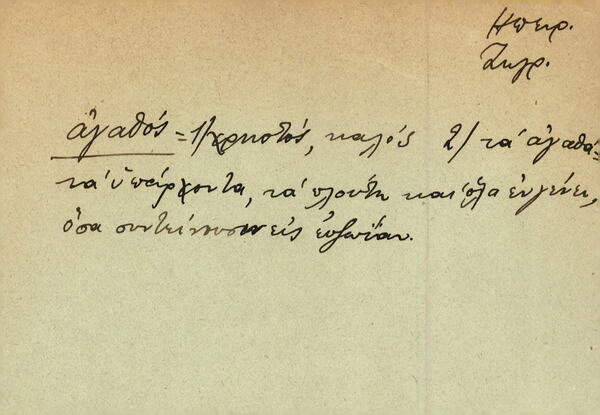 Ηπειρ.
Ζαγρ.
ἀγαθός = 1/ χρηστός, καλός 2/ τά ἀγαθά =
τά ὑπάρχοντα, τά πλούτη καί ὅλα ἐν γένει,
ὅσα συντείνουσιν εἰς εὐζωΐαν.